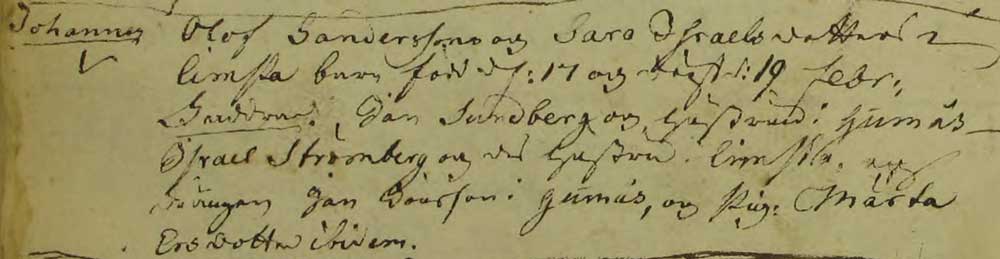 Johannes Olof Sanderssons og Sara Israels dotters i
limsta barn född d: 17 og döpt d: 19 Febr.
Faddrar: Jan Sundberg og hustrun i Gumås
Israel Strömberg og des hustru i limsta. og
drängen Jan Jönsson i gumås, og Pig: Märta
Ersdotter ibidem.